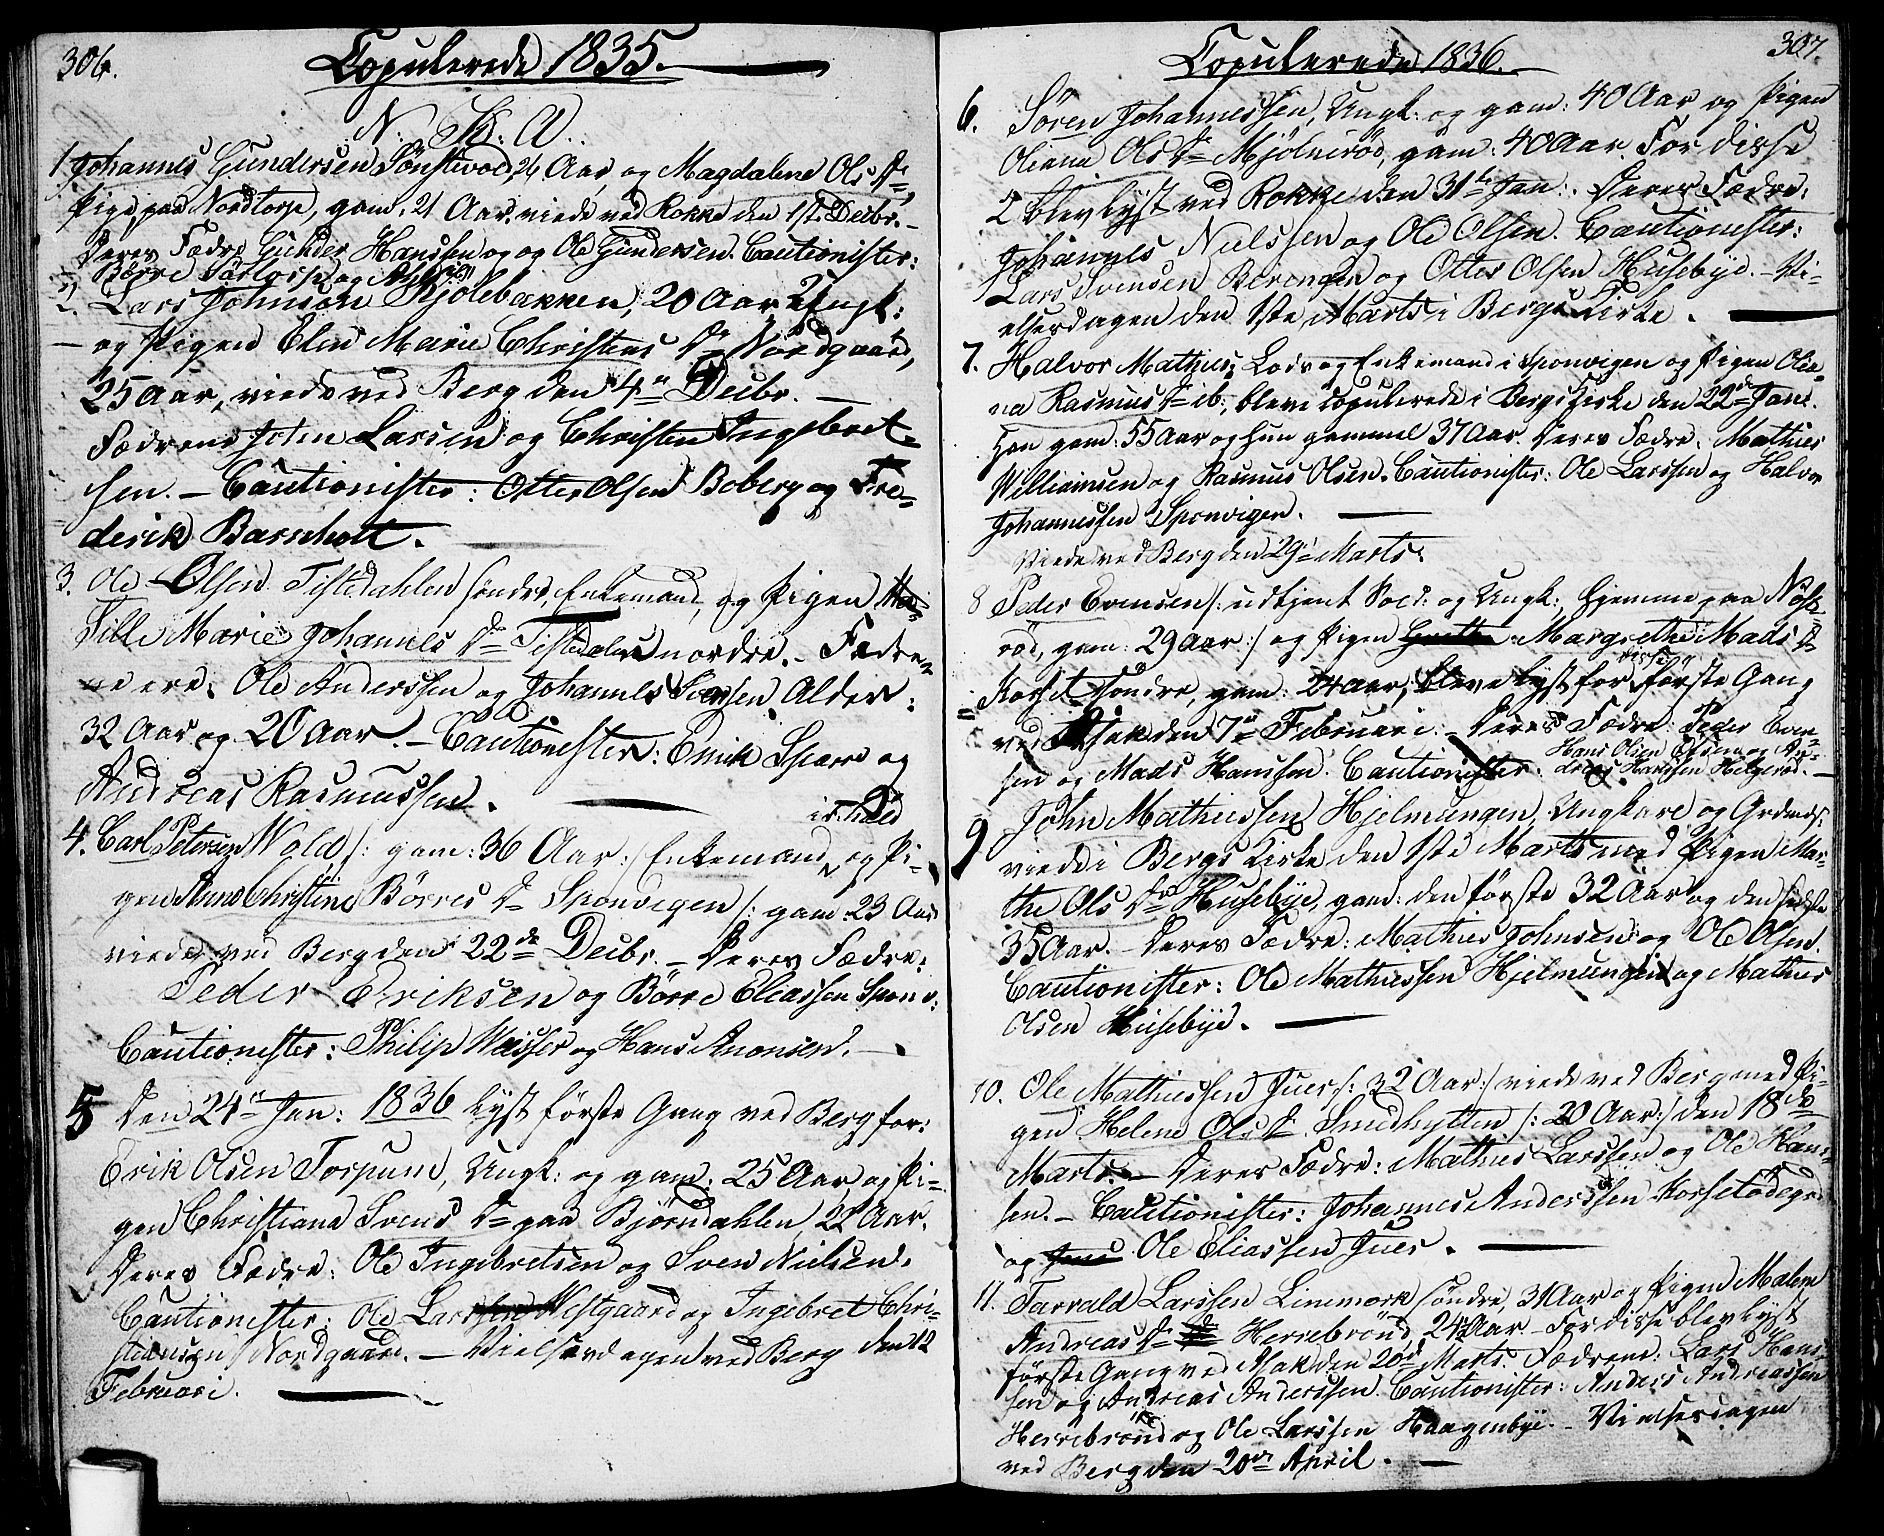 306.
Copulerede 1835.
N. K. A.
1. Johannes Gundersen Sönstevod, 26 Aar, og Magdalene Ols Dr,
Pige paa Nordtorp, gam: 21 Aar. viede ved Rokke den 1ste Decbr. -
Deres Fædre Gunder Hanssen og og Ole Gundersen. Cautionister:
Börre Torlorp og
2. Lars Johnson Kjölebakken, 20 Aar, Ungk:
og Pigen Elen Marie Christens Dr Nordgaard,
25 Aar, viede ved Berg den 4de Decbr. -
Fædrene John Larsen og Christen Ingebret-
sen. - Cautionister: Otter Olsen Boberg og Fre-
derik Bassholt.
3. Ole Olsen Tistedahlen söndre, Enkemand, og Pigen
Sille Marie Johannes Dr Tistedalen nordre. - Fædre-
ne ere: Ole Anderssen og Johannes Svensen. Alder:
32 Aar og 20 Aar. - Cautionister: Erick Sparre og
Andreas Rasmussen.
4. Carl Petersen Wold /: gam: 36 Aar :/ Enkemand og Pi-
gen Anne Christine Börres Dr Sponvigen /: gam: 23 Aar
viede ved Berg den 22de Decbr. - Deres Fædre:
Peder Eriksen og Börre Eliassen Sponv:
Cautionister: Philip Wasser og Hans Aronsen. -
5 Den 24de Jan: 1836 lyst förste Gang ved Berg for:
Erik Olsen Torpum, Ungk: og gam: 25 Aar, og Pi-
gen Christiana Svens Dr paa Björndahlen, 22 Aar.
Deres Fædre: Ole Ingebretsen og Sven Nielsen.
Cautionister: Ole Larssen Westgaard og Ingebret Chri-
stiansen Nordgaard. - Vielserdagen ved Berg den 12
Februari.
307.
Copulerede 1836.
6. Sören Johannessen, Ungk: og gam: 40 Aar og Pigen
Oliana Ols Dr Mjölneröd, gam: 40 Aar. For disse
2 blev lyst ved Rokke den 31te Jan:. Deres Fædre:
Johannes Nielssen og Ole Olsen. Cautionister:
Lars Svensen Berengen og Otter Olsen Husebye. - Vi-
elserdagen den 1ste Marts i Bergs Kirke.
7. Halvor Mathies: Lods og Enkemand i Sponvigen og Pigen Olea-
na Rasmus Dr ib:, bleve copulerede i Bergs Kirke den 22de Jan:
Han gam: 55 Aar og hun gammel 37 Aar. Deres Fædre: Mathies
Williamsen og Rasmus Olsen. Cautionister: Ole Larssen og Halvor
Johannessen Sponvigen.
Viede ved Berg den 29de Marts.
8 Peder Evensen /: udtjent Sold: og Ungk:, hjemme paa
röd, gam: 29 Aar :/ og Pigen Margrethe Mads Dr
Korset söndre, gam: 24 Aar, bleve lyst for disse förste Gang
ved Asak den 7de Februari. - Deres Fædre: Peder Even-
sen og Mads Hanssen. Cautionister: Hans Olsen og An-
dreas Hanssen Helgeröd. -
9 John Mathiessen Hjelmungen, Ungkarl og Grdmd:
viede i Bergs Kirke den 1ste Marts med Pigen Mar-
the Ols Dr Husebye, gam: den förste 32 Aar og den sidste
35 Aar. - Deres Fædre: Mathies Johnsen og Ole Olsen.
Cautionister: Ole Mathiessen Hjelmungen og Mathies
Olsen Husebye.
10. Ole Mathiessen Jues /: 32 Aar :/ viede ved Berg med Pi-
gen Helene Ols Dr Smidhytten /: 20 Aar :/ den 18de
Marts. - Deres Fædre: Mathies Larssen og Ole Hans-
sen. - Cautionister: Johannes Anderssen Korsetödegrd
og Ole Eliassen Jues.
11. Tarvald Larssen Linemork söndre, 31 Aar og Pigen Malene
Andreas Dr Herrebrönd, 24 Aar. - For disse blev lyst
förste Gang ved Asak den 20de Marts. Fædrene: Lars Hans-
sen og Andreas Anderssen. Cautionister: Anders Andreassen
Herrebrönd og Ole Larssen Haagenbye. - Vielserdagen
ved Berg den 20de April. -